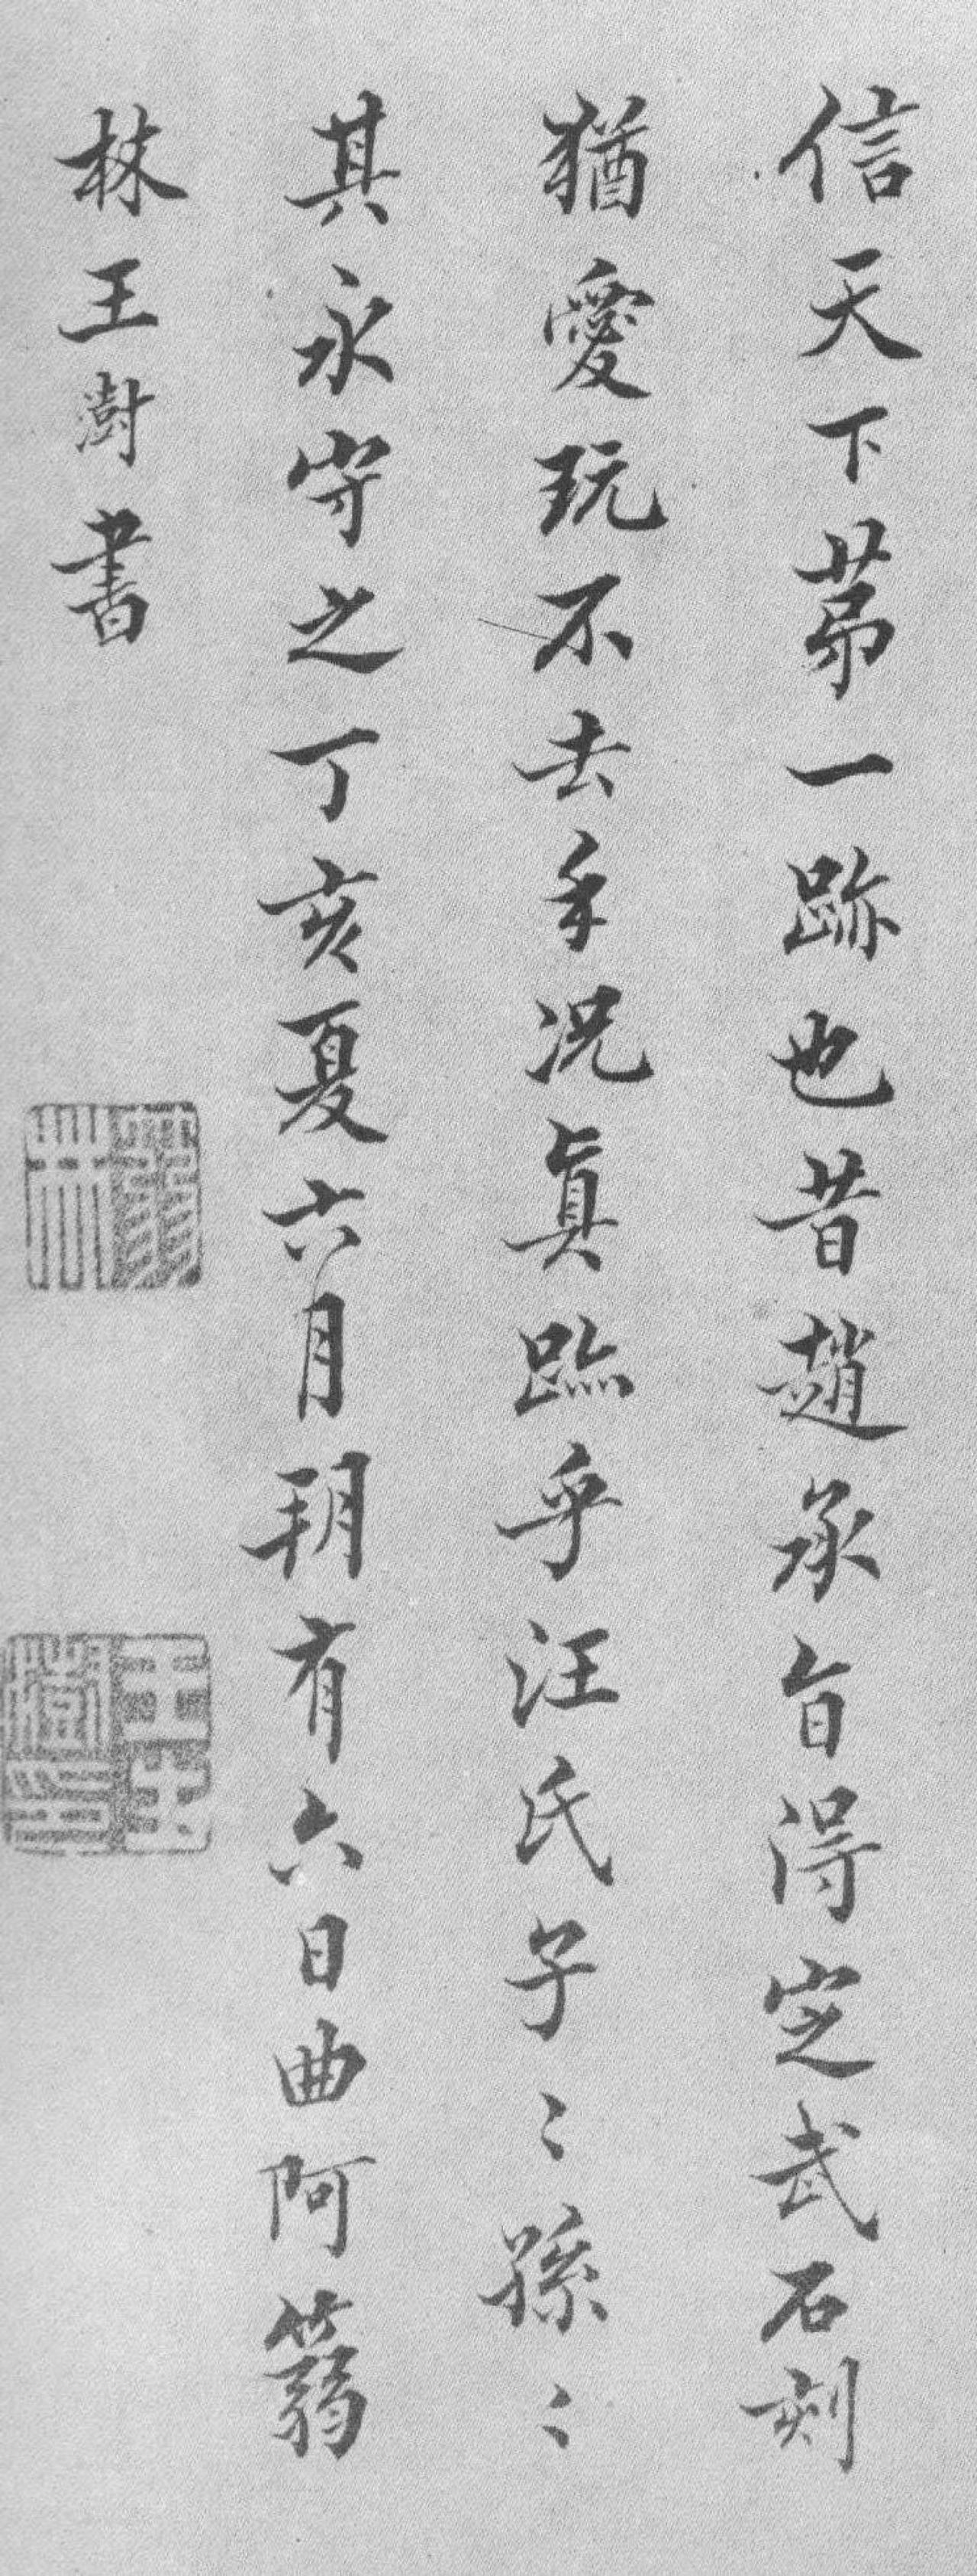 信天下苐一跡也昔趙承旨得定武石刻
猶愛玩不去手况真跡乎汪氏子〻孫〻
其永守之丁亥夏六月朔有六日曲阿篛
林王澍書
篛林
王澍印